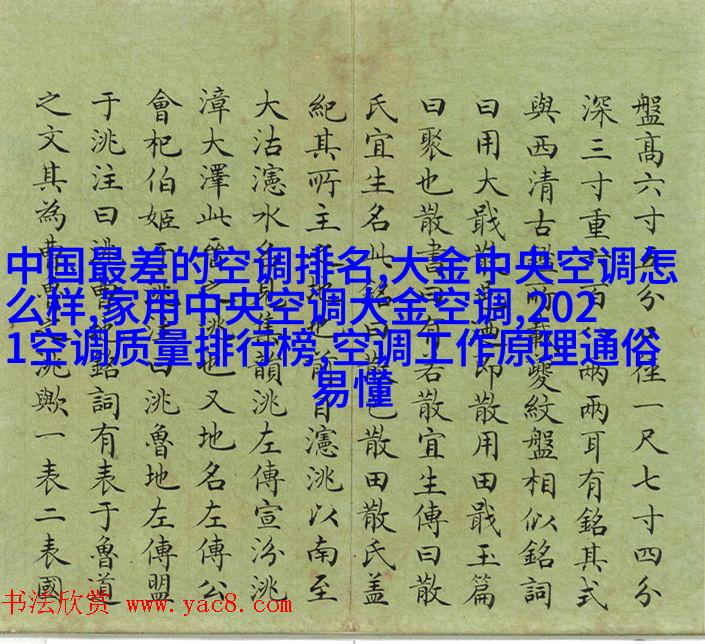 盤髙六寸
分口徑一尺七寸四分
深三寸重
百
兩兩耳有銘其式
與西清古
載夔紋盤相似銘詞
曰用大戢散
即散用田戢玉篇
曰聚也散書曰有若散宜生傳曰散
氏宜生名此銘曰散
散田散氏盖
紀其所主
地也
首曰瀗洮以南至
大沽瀗水
集韻洮左傳宣汾洮
漳大澤此
洮也又地名左傳公
會杞伯姬
于洮
曰洮魯地左傳盟
于洮注曰洮曹
銘詞有表于魯道
之文其為曲
洮歟一表二表國
中国最差的空调排名,大金中央空调怎
么样,家用中央空调大金空调,202
1空调质量排行榜,空调工作原理通俗
易懂
书法欣赏 www.yac8.com